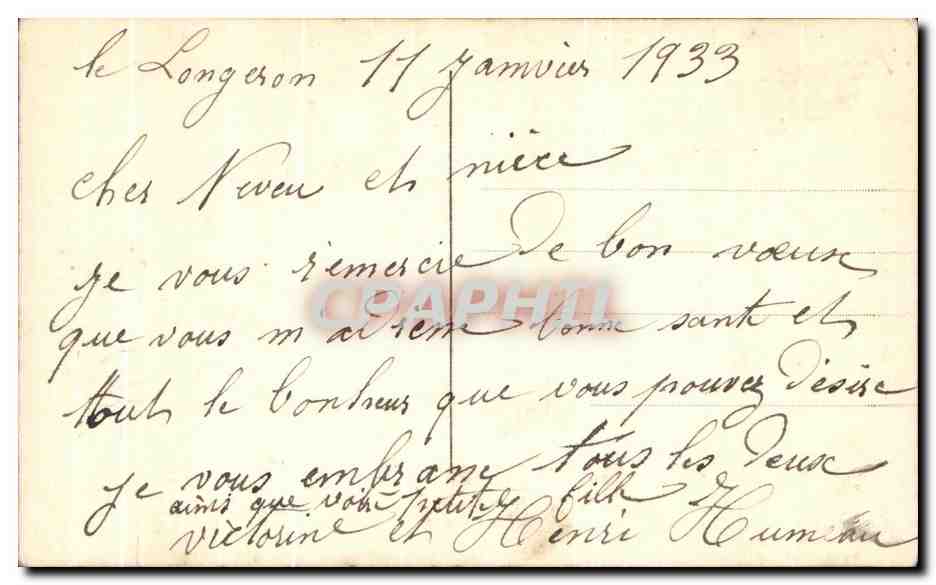 le Longeron 11 Janvier 1933
cher Neveu et nièce
je vous rémercie De bon vœux
que vous m adrène bonne sante et
tout le bonheur que vous pouvez Désire
je vous embrane tous les Deux
ainsi que votre petite fille
victorine et Henri Humeau
CPAPHIL